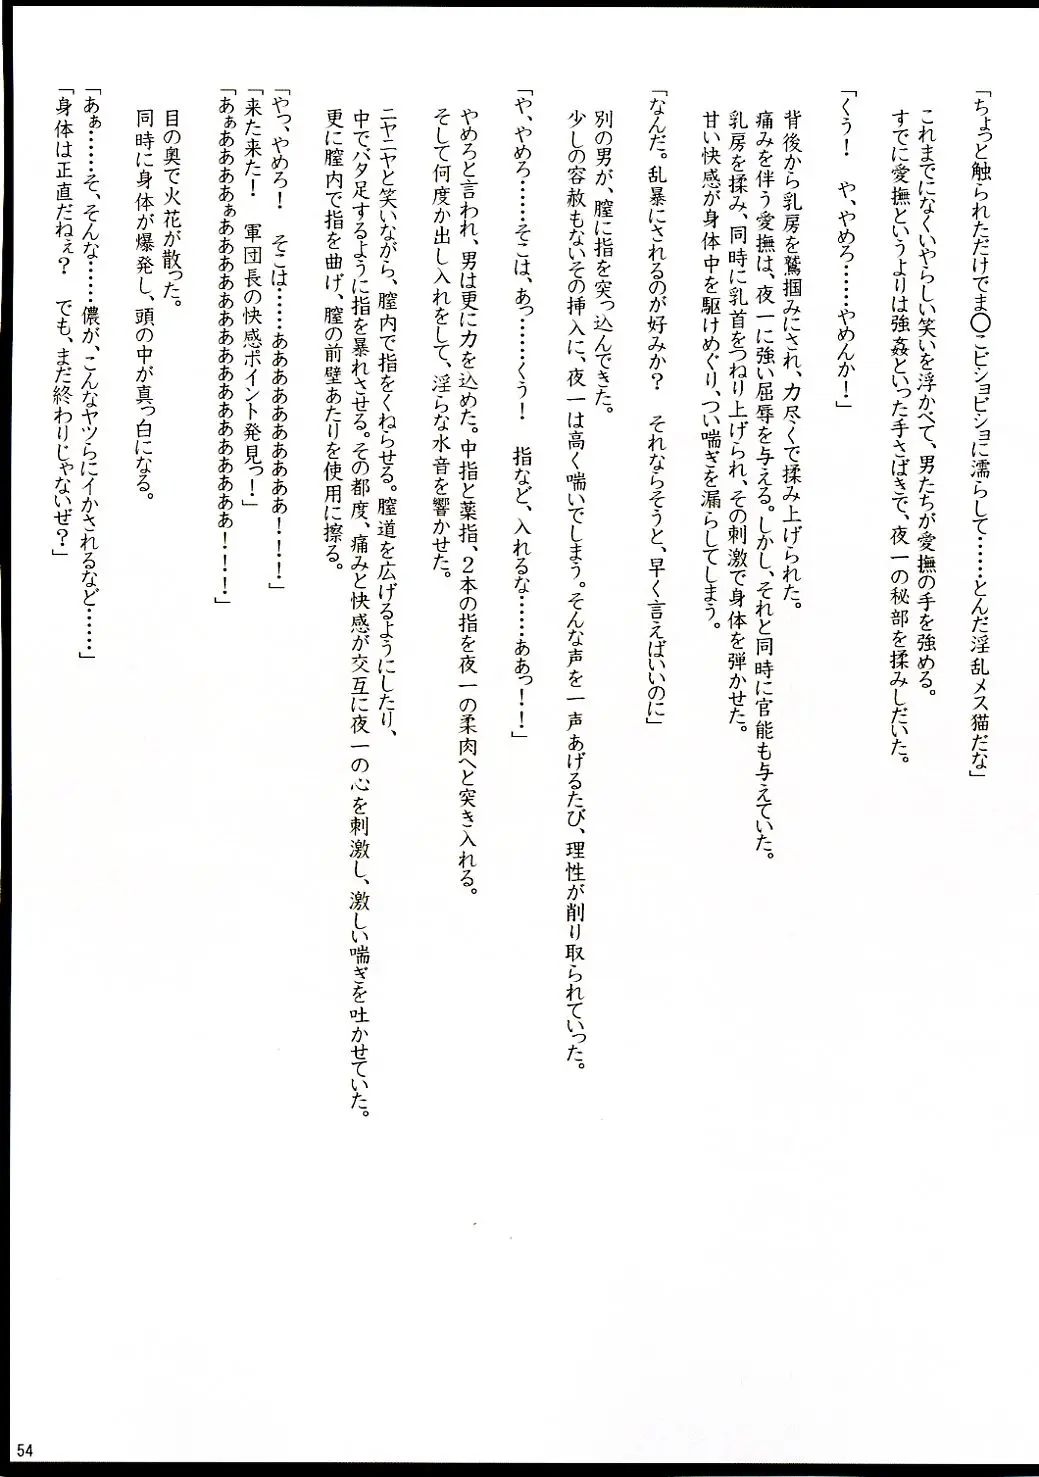 「ちょっと触られただけでま◯こビショビショに濡らして……とんだ淫乱メス猫だな」
これまでになくいやらしい笑いを浮かべて、男たちが愛撫の手を強める。
すでに愛撫というよりは強姦といった手さばきで、夜一の秘部を揉みしだいた。
「くぅ！　や、やめろ……やめんか！」
背後から乳房を鷲掴みにされ、力尽くで揉み上げられた。
痛みを伴う愛撫は、夜一に強い屈辱を与える。しかし、それと同時に官能も与えていた。
乳房を揉み、同時に乳首をつねり上げられ、その刺激で身体を弾かせた。
甘い快感が身体中を駆けめぐり、つい喘ぎを漏らしてしまう。
「なんだ。乱暴にされるのが好みか？　それならそうと、早く言えばいいのに」
別の男が、膣に指を突っ込んできた。
少しの容赦もないその挿入に、夜一は高く喘いでしまう。そんな声を一声あげるたび、理性が削り取られていった。
「や、やめろ……そこは、あっ……くぅ！　指など、入れるな……ああっ！！」
やめろと言われ、男は更に力を込めた。中指と薬指、２本の指を夜一の柔肉へと突き入れる。
そして何度か出し入れをして、淫らな水音を響かせた。
ニヤニヤと笑いながら、膣内で指をくねらせる。膣道を広げるようにしたり、
中でバタ足するように指を暴れさせる。その都度、痛みと快感が交互に夜一の心を刺激し、激しい喘ぎを吐かせていた。
更に膣内で指を曲げ、膣の前壁あたりを使用に擦る。
「やっ、やめろ！　そこは……ああああああああぁ！！！」
「来た来た！　軍団長の快感ポイント発見っ！」
「あぁあああああぁあああああああああああああああぁ！！！」
目の奥で火花が散った。
同時に身体が爆発し、頭の中が真っ白になる。
「あぁ……そ、そんな……儂が、こんなヤツらにイかされるなど……」
「身体は正直だねぇ？　でも、まだ終わりじゃないぜ？」
54